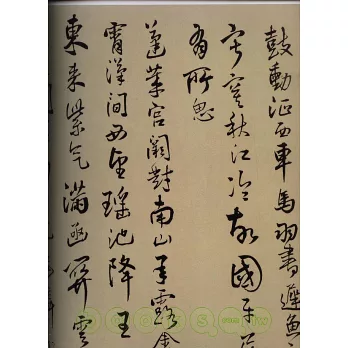 鼓動征西車馬羽書遲魚
寂寞秋江冷故國平居
有所思
蓬萊宮闕對南山承露金
霄漢間西望瑤池降王
東來紫氣滿函關雲